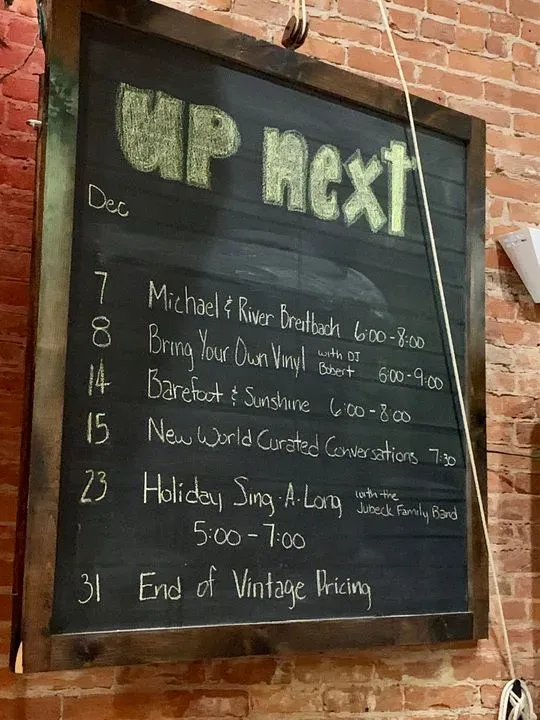 up next
Dec
7 Michael & River Breitbach 6:00-8:00
8 Bring Your Own Vinyl with DJ Bobert 6:00-9:00
14 Barefoot & Sunshine 6:00-8:00
15 New World Curated Conversations 7:30
23 Holiday Sing-A-Long with the Jubeck Family Band
5:00-7:00
31 End of Vintage Pricing